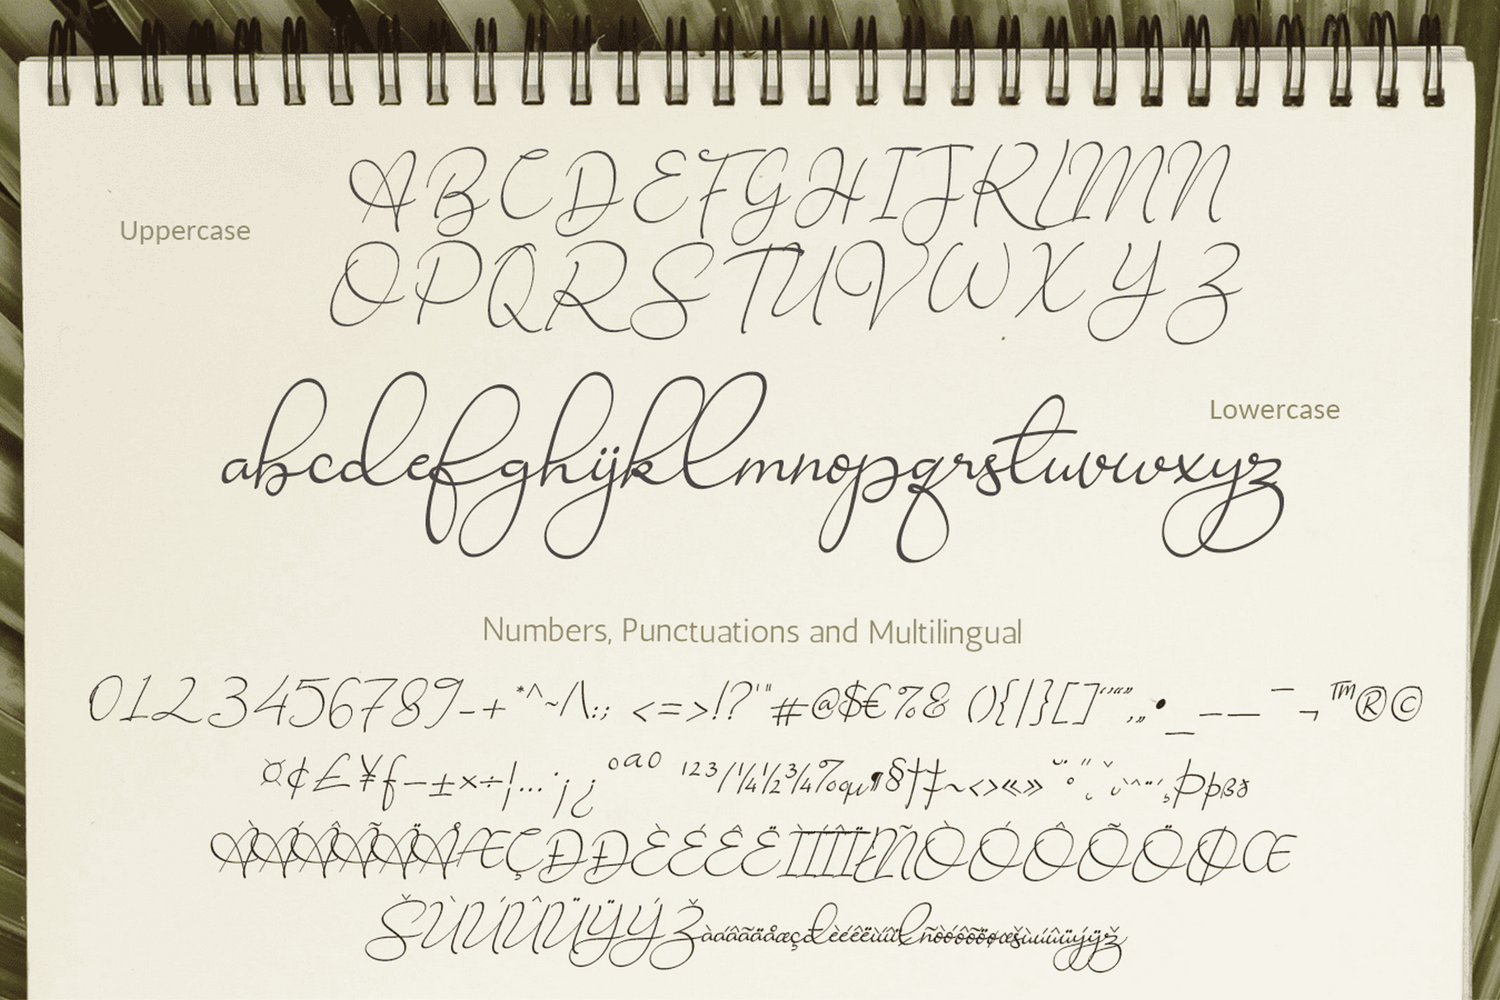 ABCDEFGHIJKLMN
Uppercase
OPQRSTUVWXYZ
Lowercase
abcdefghijklmnopqrstuvwxyz
Numbers, Punctuations and Multilingual
0123456789-+*^~/\:; <=>!?'"#@$€%& (){|}[]‘’“”‚„•_–—¯¬™®©
¤¢£¥ƒ−±×÷¦…·¡¿ºª° ¹²³/¼½¾‰µ¶§†‡~‹›«» Þþßð
ÀÁÂÃÄÅÆÇÐĐÈÉÊËÌÍÎÏŁÑÒÓÔÕÖØŒ
ŠÙÚÛÜŸÝŽàáâãäåæçdèéêëìíîïłñòóôõöøœšùúûüýÿž